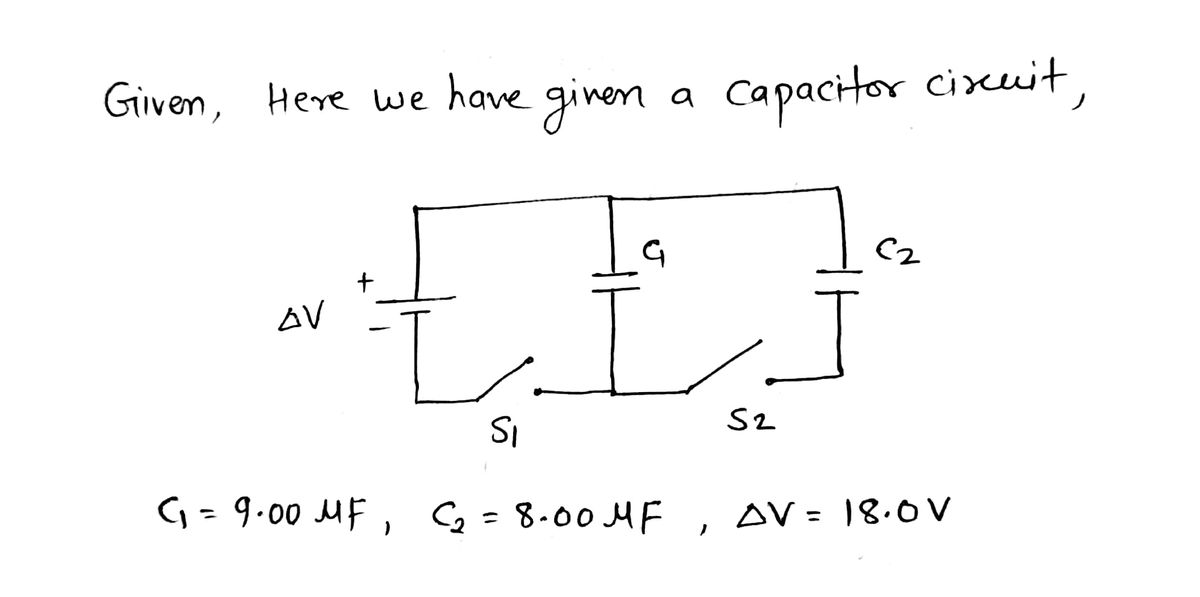 Given, Here we have given a capacitor circuit,
C1
C2
+
ΔV
-
S1
S2
C1 = 9.00 MF, C2 = 8.00 MF, ΔV = 18.0 V